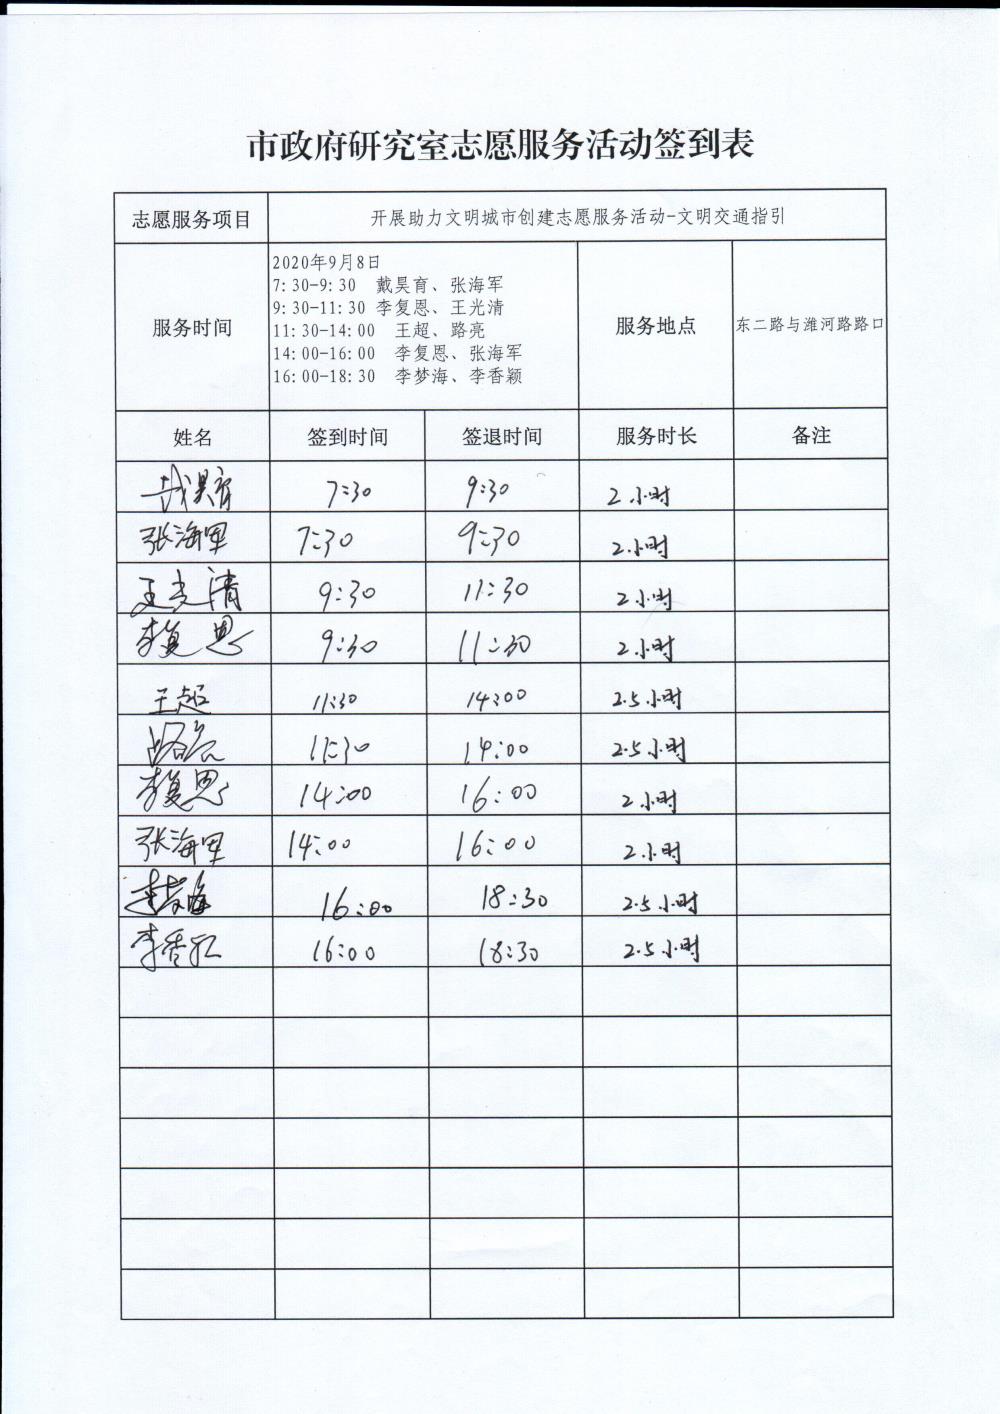 市政府研究室志愿服务活动签到表
志愿服务项目 开展助力文明城市创建志愿服务活动-文明交通指引
服务时间
2020年9月8日
7:30-9:30 戴昊育、张海军
9:30-11:30 李复恩、王光清
11:30-14:00 王超、路亮
14:00-16:00 李复恩、张海军
16:00-18:30 李梦海、李香颖
服务地点 东二路与潍河路路口
姓名 签到时间 签退时间 服务时长 备注
戴昊育 7:30 9:30 2小时
张海军 7:30 9:30 2小时
王光清 9:30 11:30 2小时
李复恩 9:30 11:30 2小时
王超 11:30 14:00 2.5小时
路亮 11:30 14:00 2.5小时
李复恩 14:00 16:00 2小时
张海军 14:00 16:00 2小时
李梦海 16:00 18:30 2.5小时
李香颖 16:00 18:30 2.5小时